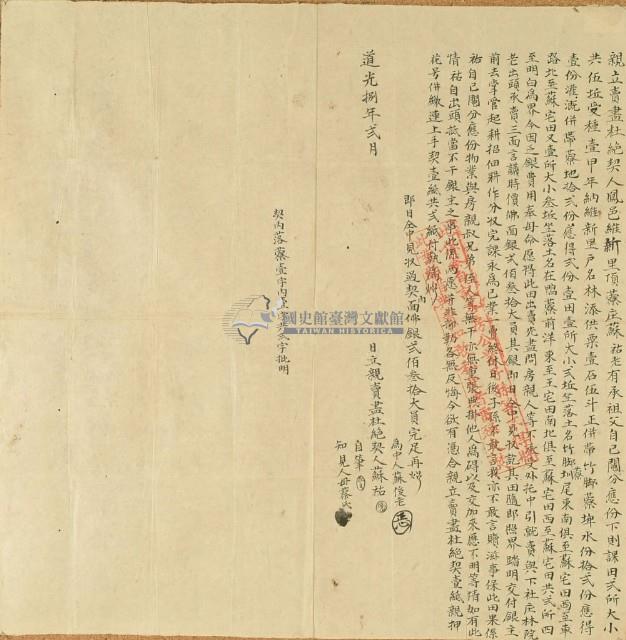 親立賣盡杜絕契人鳳邑維新里頂蔡庄蘇祐老有承祖父自己鬮分應份下則課田弍所大小
共伍坵受種壹甲年納維新里戶名林添供粟壹石伍斗正併帶竹腳藔埤水份拾弍份應得
壹份灌溉併帶藔地拾弍份應得弍份壹田壹所大小弍坵坐落土名竹腳圳尾東南俱至蘇宅田西至車
路北至蘇宅田又壹所大小叁坵坐落土名在鴨藔前洋東至王宅田南北俱至蘇宅田西至蘇宅田共弍所四
至明白為界今因乏銀費用奉母命愿將此田出賣先盡問房親人等不承受外托中引就賣與下社庄林院
老出頭承買三面言議時價佛面銀弍佰叁拾大員其銀即日仝中見收訖其田隨即照界踏明交付銀主
前去掌管起耕招佃耕作分收完課永為己業一賣終休日後子孫不敢言找亦不敢言贖滋事保此田果係
祐自己鬮分應份物業與房親叔兄弟侄人等無干亦無重張典掛他人為碍以及交加來歷不明等情如有此
情祐自出頭抵當不干銀主之事此係兩愿各無反悔今欲有憑合親立賣盡杜絕契壹紙親押
花号併繳連上手契壹紙共弍紙付執為炤
即日仝中見收過契面佛銀弍佰叁拾大員完足再炤
為中人蘇俊老
日立親賣盡杜絕契人蘇祐
自筆
知見人母蔡氏
道光捌年弍月
契內落藔壹字內弍字批明
國史館臺灣文獻館
TAIWAN HISTORICA